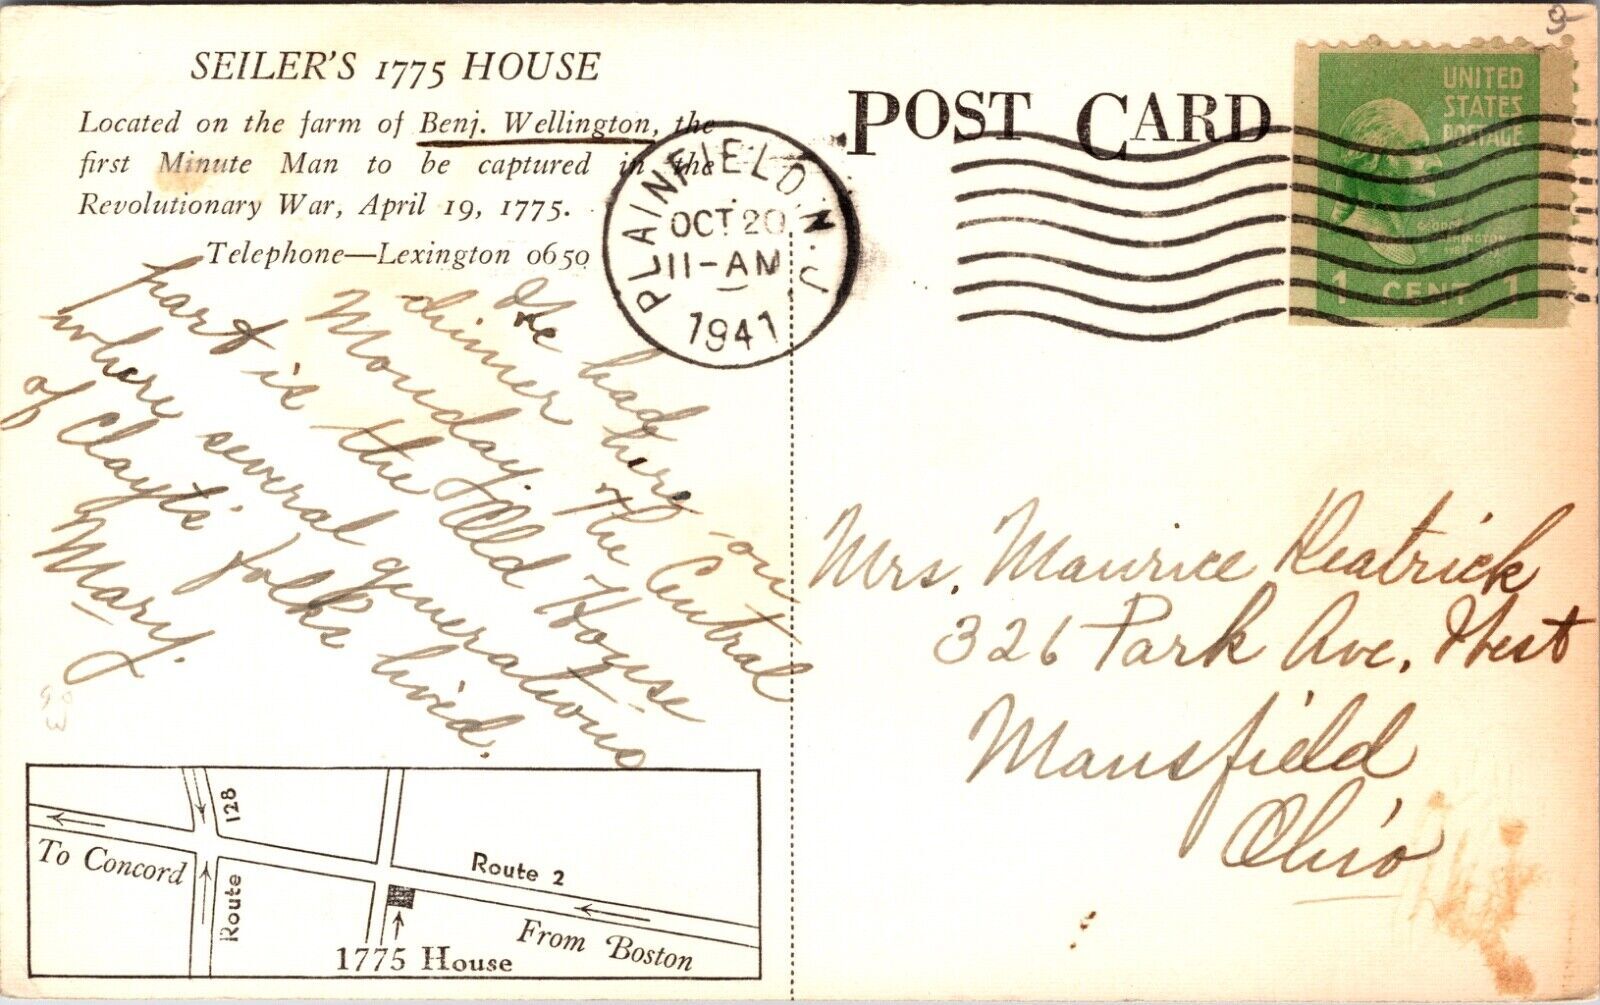 SEILER'S 1775 HOUSE
Located on the farm of Benj. Wellington, the
first Minute Man to be captured in the
Revolutionary War, April 19, 1775.
Telephone—Lexington 0650
We had
dinner here on
Monday. The Central
part is the Old House
where several generations
of Clayt's folks lived.
Mary.
To Concord
Route 128
Route 2
From Boston
1775 House
PLAINFIELD, N.J.
OCT 20
11-AM
1941
POST CARD
UNITED
STATES
POSTAGE
GEORGE
WASHINGTON
1 CENT 1
Mrs. Maurice Heatrick
326 Park Ave. West
Mansfield
Ohio